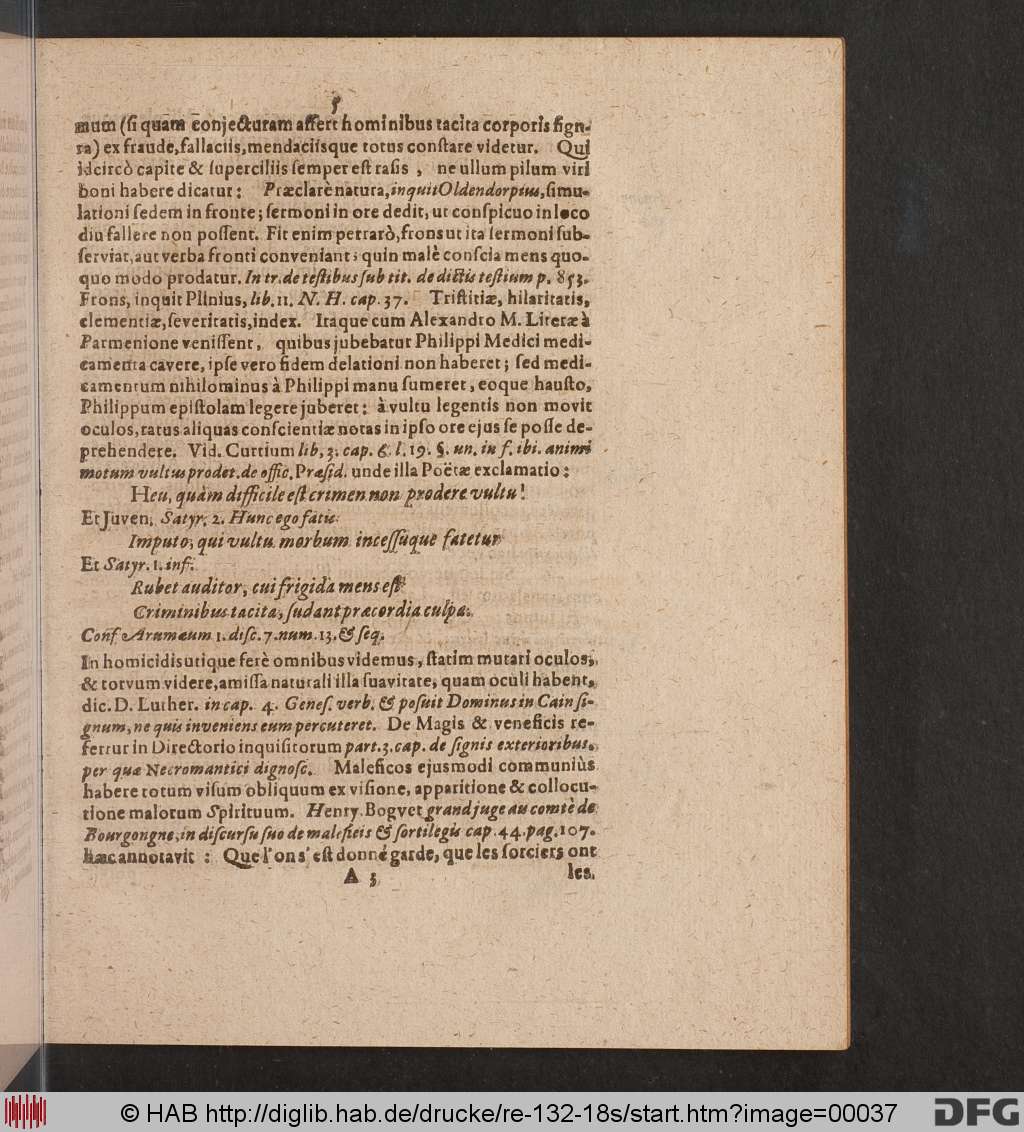 5
mum (ſi quam conjecturam affert hominibus tacita corporis figu-
ra) ex fraude, fallaciis, mendaciisque totus conſtare videtur. Qui
idcircò capite & ſuperciliis ſemper eſt raſis , ne ullum pilum viri
boni habere dicatur: Præclarè natura, inquit Oldendorpius, ſimu-
lationi ſedem in fronte; ſermoni in ore dedit, ut conſpicuo in loco
diu fallere non poſſent. Fit enim perrarò, frons ut ita ſermoni ſub-
ſerviat, aut verba fronti conveniant; quin malè conſcia mens quo-
quo modo prodatur. In tr. de teſtibus ſub tit. de dictis teſtium p. 853.
Frons, inquit Plinius, lib. 11. N. H. cap. 37. Triſtitiæ, hilaritatis,
clementiæ, ſeveritatis, index. Itaque cum Alexandro M. Literæ à
Parmenione veniſſent, quibus jubebatur Philippi Medici medi-
camenta cavere, ipſe vero fidem delationi non haberet; ſed medi-
camentum nihilominus à Philippi manu ſumeret, eoque hauſto,
Philippum epiſtolam legere juberet: à vultu legentis non movit
oculos, ratus aliquas conſcientiæ notas in ipſo ore ejus ſe poſſe de-
prehendere. Vid. Curtium lib. 3. cap. 6. l. 19. §. un. in f. ibi. animi
motum vultus prodet. de offic. Præſid. unde illa Poëtæ exclamatio:
Heu, quàm difficile eſt crimen non prodere vultu!
Et Juven. Satyr. 2. Hunc ego fatis
Imputo, qui vultu morbum inceſſuque fatetur
Et Satyr. 1. inf.
Rubet auditor, cui frigida mens eſt
Criminibus tacita, ſudant præcordia culpa.
Conf Arumæum 1. diſc. 7. num. 13. & ſeq.
In homicidis utique ferè omnibus videmus, ſtatim mutari oculos,
& torvum videre, amiſſa naturali illa ſuavitate, quam oculi habent,
dic. D. Luther. in cap. 4. Geneſ. verb. & poſuit Dominus in Cain ſi-
gnum, ne quis inveniens eum percuteret. De Magis & veneficis re-
fertur in Directorio inquiſitorum part. 3. cap. de ſignis exterioribus,
per quæ Necromantici dignoſc. Maleficos ejusmodi communiùs
habere totum viſum obliquum ex viſione, apparitione & collocu-
tione malorum Spirituum. Henry Bogvet grand juge au comtè de
Bourgongne, in diſcurſu ſuo de maleficis & ſortilegis cap. 44. pag. 107.
hæc annotavit : Que l'on s'eſt donné garde, que les ſorciers ont
A 3 les.
© HAB http://diglib.hab.de/drucke/re-132-18s/start.htm?image=00037
DFG